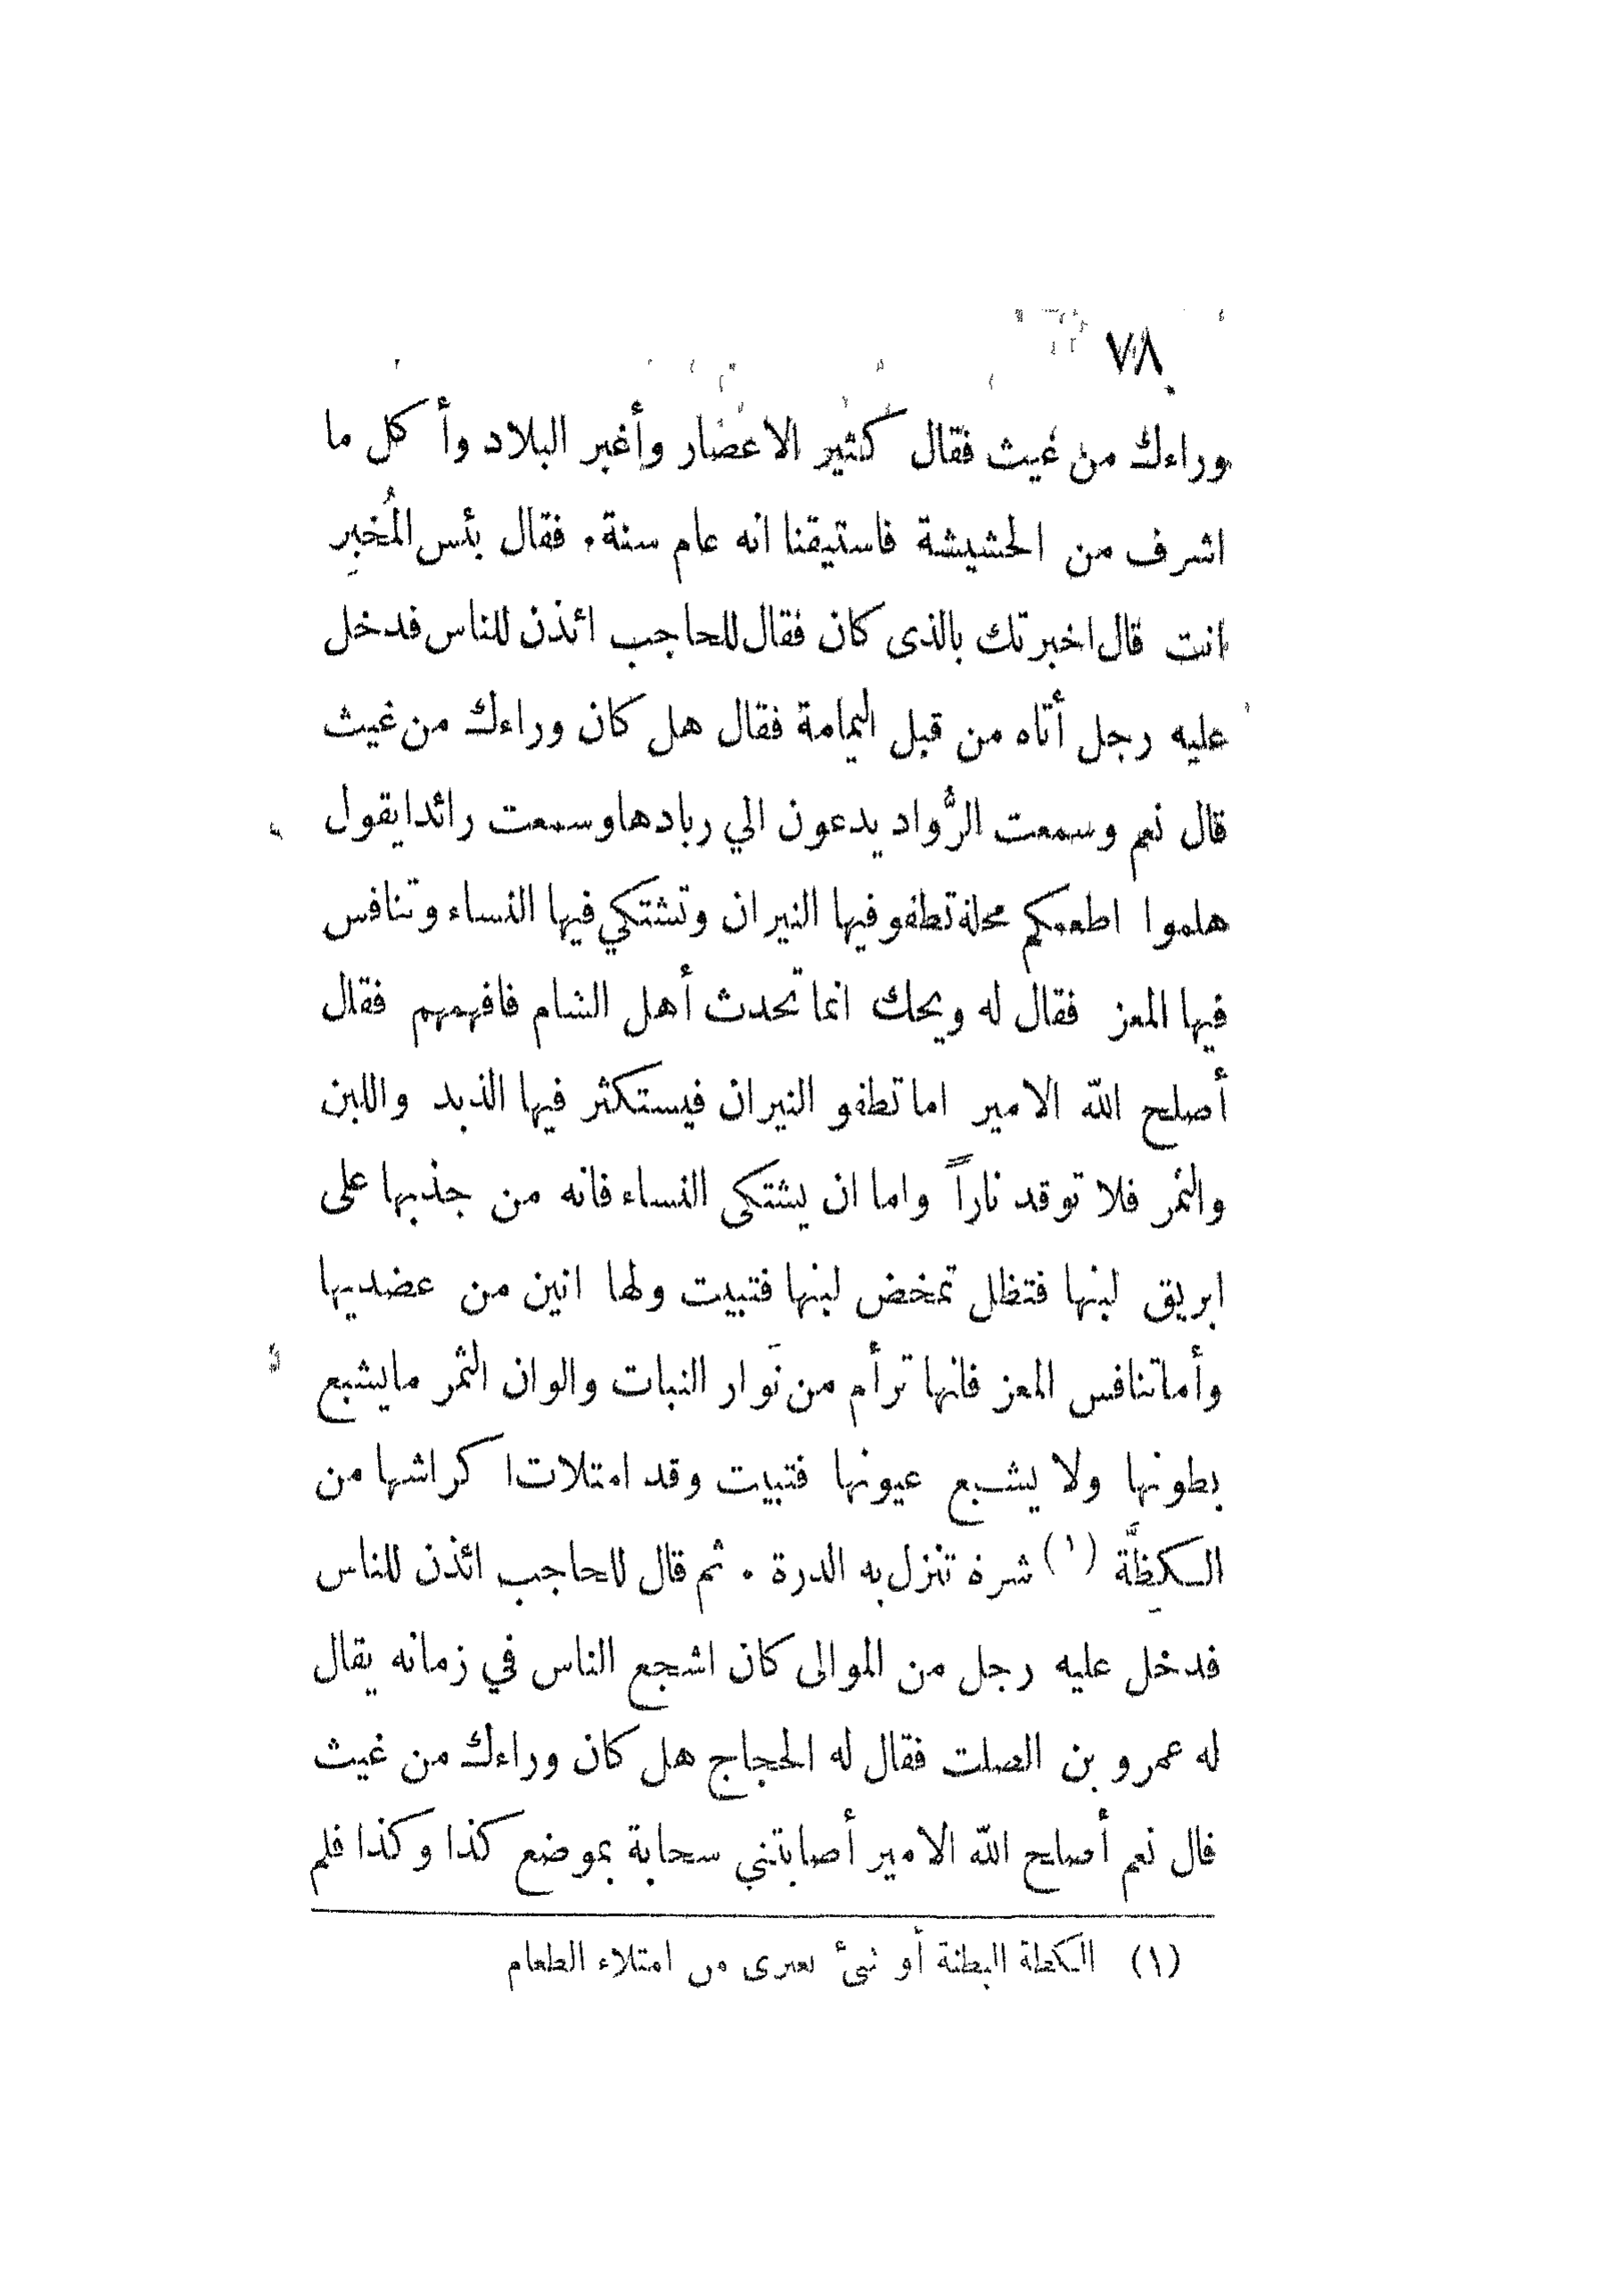 ٧٨
وراءك من غيث فقال كثير الاعصار وأغبر البلاد وأكل ما
اشرف من الحشيشة فاستيقنا انه عام سنة. فقال بئس المُخبِر
انت قال اخبرتك بالذى كان فقال للحاجب ائذن للناس فدخل
عليه رجل أتاه من قبل اليمامة فقال هل كان وراءك من غيث
قال نعم وسمعت الرُّواد يدعون الي ربادها وسمعت رائدا يقول
هلموا اطعمكم محلة تطفو فيها النيران وتشتكي فيها النساء وتنافس
فيها المعز فقال له ويحك انما تحدث أهل الشام فافهمهم فقال
أصلح الله الامير اما تطفو النيران فيستكثر فيها الذبد واللبن
والتمر فلا توقد ناراً واما ان يشتكى النساء فانه من جذبها على
ابريق لبنها فتظل تمخض لبنها فتبيت ولها انين من عضديها
وأما تنافس المعز فانها ترأم من نَوار النبات والوان الثمر ما يشبع
بطونها ولا يشبع عيونها فتبيت وقد امتلات اكراشها من
الكِظَّة (١) شرة تنزل به الدرة . ثم قال للحاجب ائذن للناس
فدخل عليه رجل من الموالى كان اشجع الناس في زمانه يقال
له عمرو بن الصلت فقال له الحجاج هل كان وراءك من غيث
قال نعم أصلح الله الامير أصابتني سحابة بموضع كذا وكذا فلم
(١) الكظة البطنة أو شئ يعترى من امتلاء الطعام